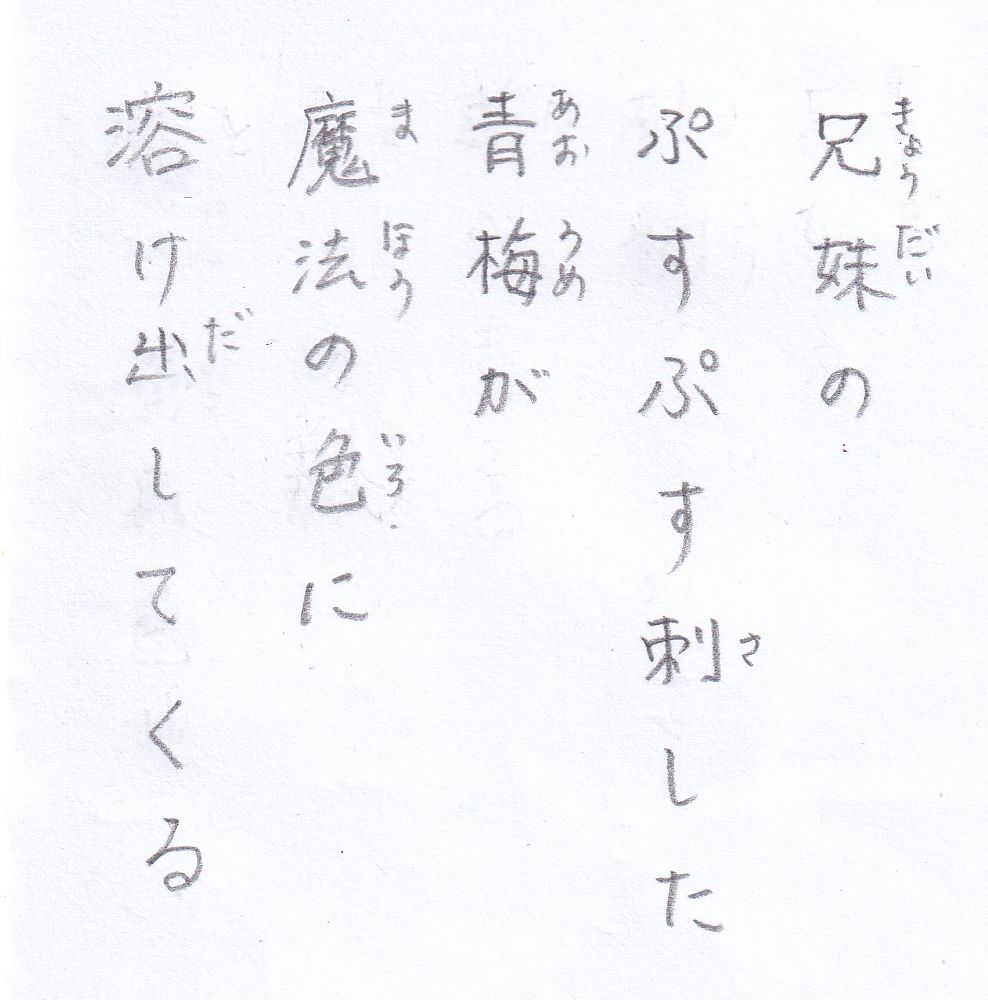 兄妹の
きょうだい
ぷすぷす刺した
さ
青梅が
あおうめ
魔法の色に
まほう いろ
溶け出してくる
だ